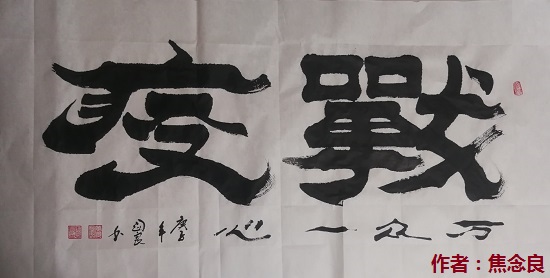 戰疫
万众一心
庚子年
作者：焦念良